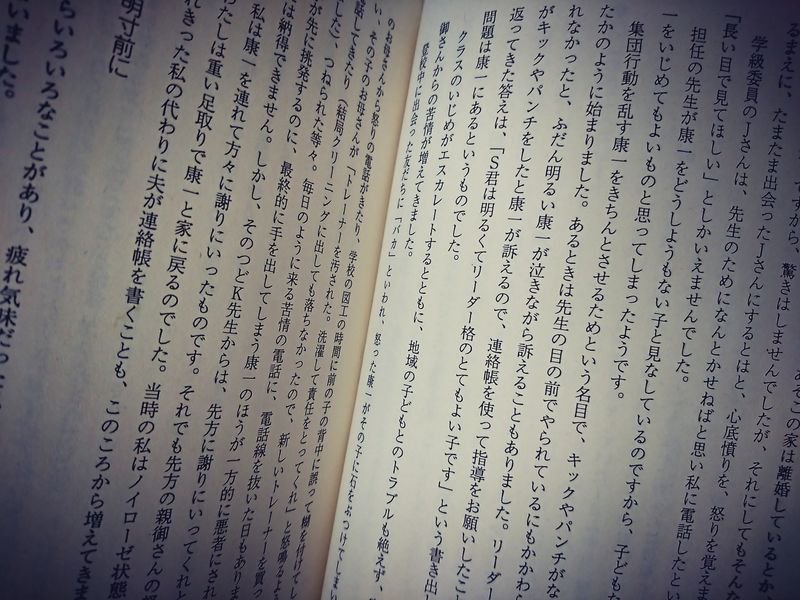 ですから、驚きはしませんでしたが、それにしてもそんな
るまえに、たまたま出会ったJさんにするとはと、心底憤りを、怒りを覚えま
学級委員のJさんは、先生のためになんとかせねばと思い私に電話したとい
「長い目で見てほしい」としかいえませんでした。
担任の先生が康一をどうしようもない子と見なしているのですから、子どもた
一をいじめてもよいものと思ってしまったようです。
集団行動を乱す康一をきちんとさせるためという名目で、キックやパンチがな
たかのように始まりました。あるときは先生の目の前でやられているにもかかわら
れなかったと、ふだん明るい康一が泣きながら訴えることもありました。リーダー
がキックやパンチをしたと康一が訴えるので、連絡帳を使って指導をお願いしたこ
返ってきた答えは、「S君は明るくてリーダー格のとてもよい子です」という書き出し
問題は康一にあるというものでした。
クラスのいじめがエスカレートするとともに、地域の子どもとのトラブルも絶えず、
御さんからの苦情が増えてきました。
登校中に出会った友だちに「バカ」といわれ、怒った康一がその子に石をぶつけてしまい
のお母さんから怒りの電話がきたり、学校の図工の時間に前の子の背中に誤って糊を付けてし
い、その子のお母さんが「トレーナーを汚された。洗濯して責任をとってくれ」と怒鳴るよ
話してきたり（結局クリーニングに出しても落ちなかったので、新しいトレーナーを買っ
した）、つねられた等々。毎日のように来る苦情の電話に、電話線を抜いた日もありま
が先に挑発するのに、最終的に手を出してしまう康一のほうが一方的に悪者にされ
は納得できません。しかし、そのつどK先生からは、先方に謝りにいってくれと
私は康一を連れて方々に謝りにいったものです。それでも先方の親御さんの
わたしは重い足取りで康一と家に戻るのでした。当時の私はノイローゼ状態
れきった私の代わりに夫が連絡帳を書くことも、このころから増えてきま
明寸前に
らいろいろなことがあり、疲れ気味だった
いました。